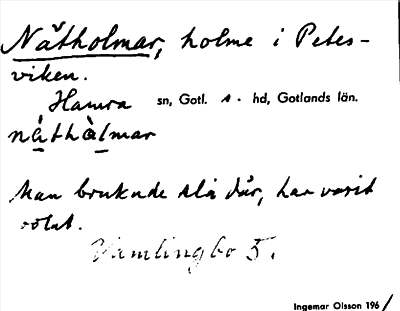 Nätholmar, holme i Petes-
viken.
Hamra sn, Gotl. s. hd, Gotlands län.
nàthàlmar
Man brukade slå där, har varit
rötat.
Vamlingbo 5.
Ingemar Olsson 1961